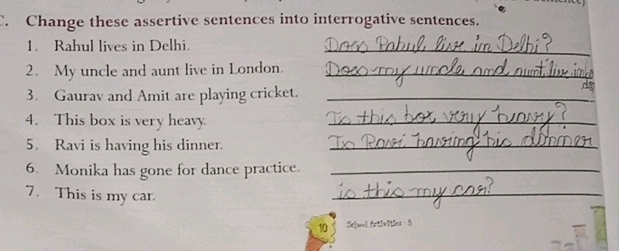 C. Change these assertive sentences into interrogative sentences.
1. Rahul lives in Delhi. Does Rahul live in Delhi?
2. My uncle and aunt live in London. Does my uncle and aunt live in
3. Gaurav and Amit are playing cricket.
4. This box is very heavy. Is this box very heavy?
5. Ravi is having his dinner. Is Ravi having his dinner
6. Monika has gone for dance practice.
7. This is my car. is this my car?
10 School Activities - 5